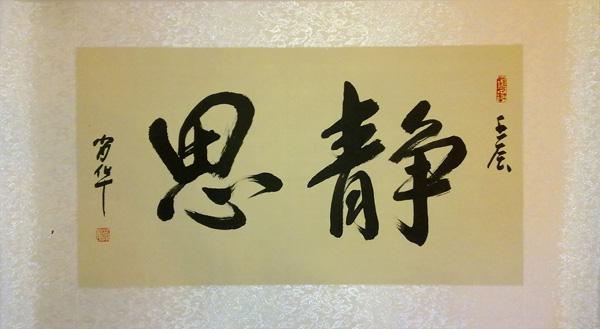 壬辰
静思
肖华